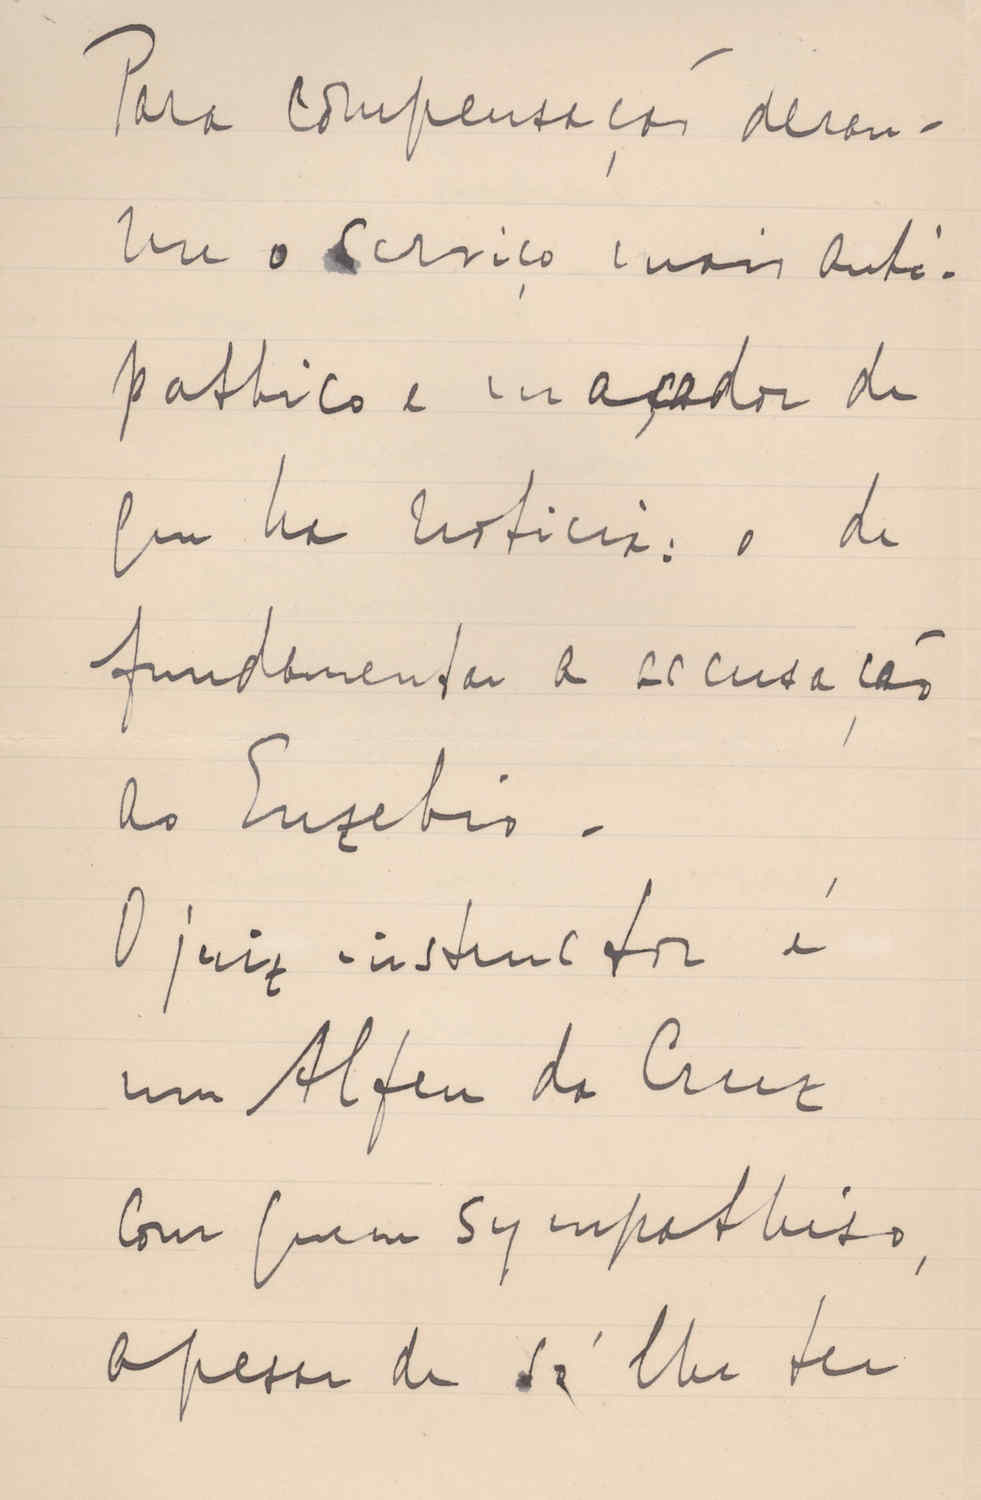 Para compensação deram-
me o serviço mais anti-
pathico e maçador de
que ha noticia: o de
fundamentar a accusação
ao Euzebio -
O juiz instructor é
um Alfeu da Cruz
com quem sympathiso,
apesar de só lhe ter